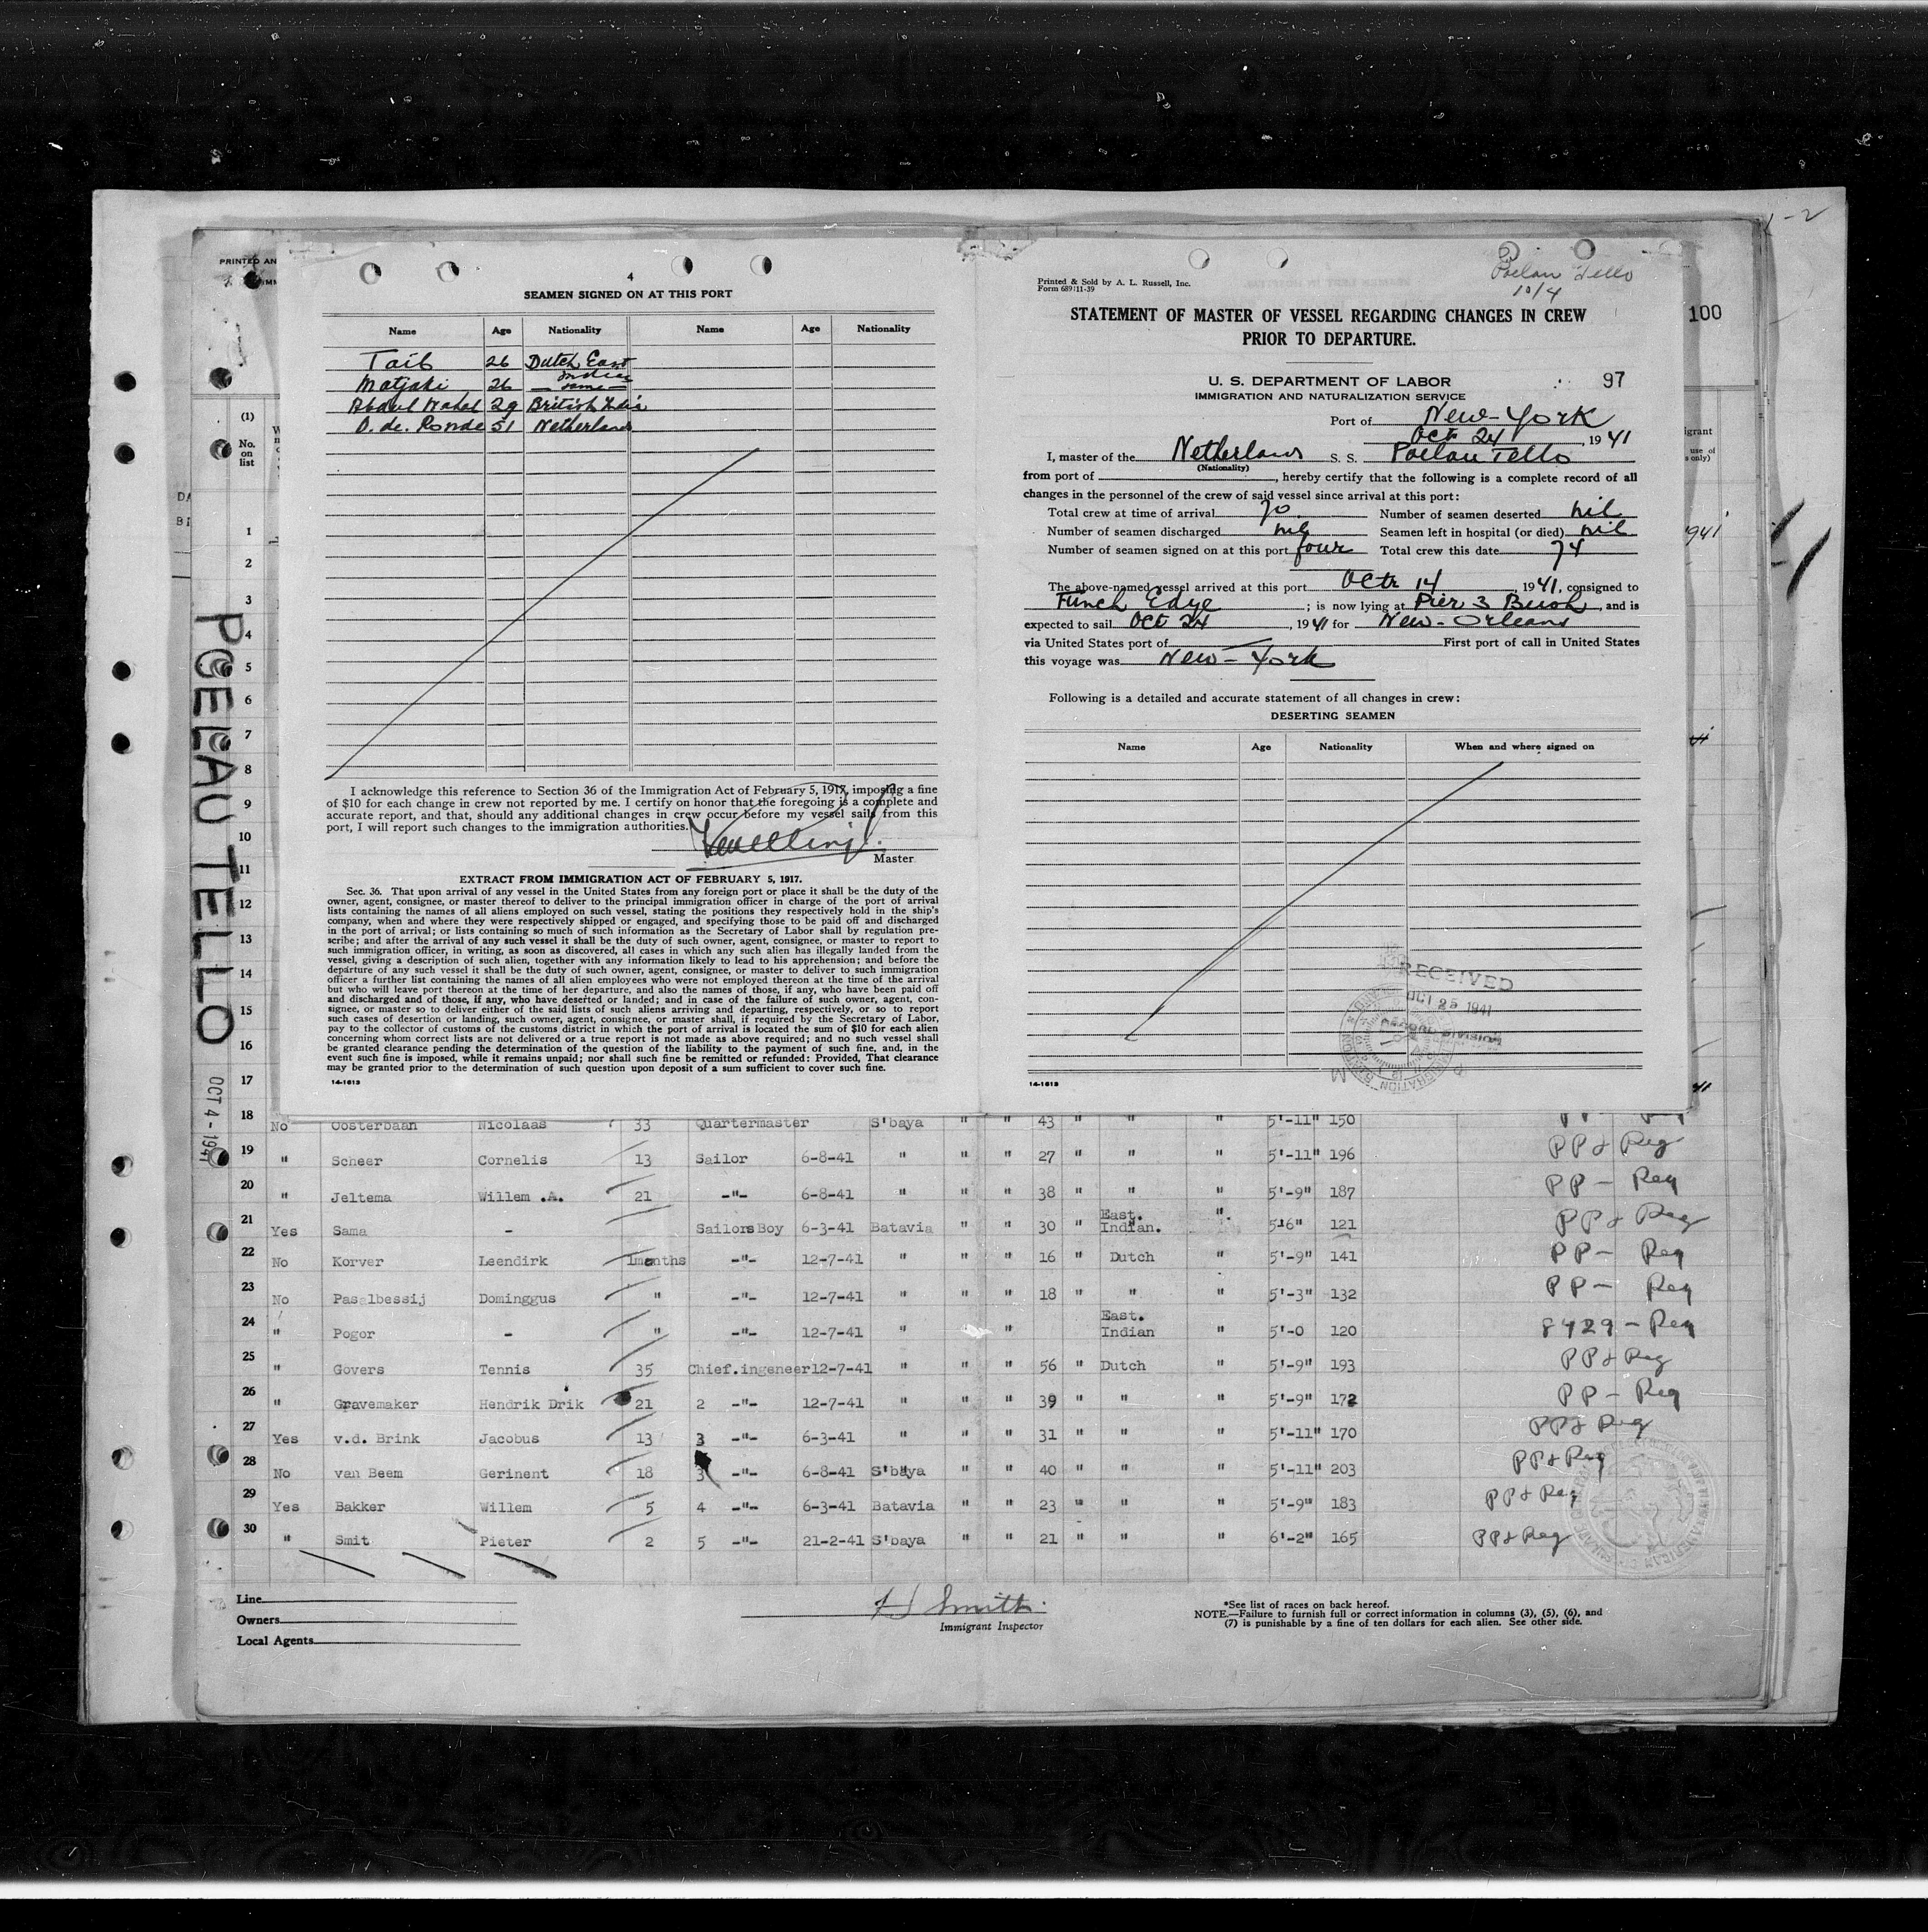 1-2
PRINTED AN
4
SEAMEN SIGNED ON AT THIS PORT
Name Age Nationality Name Age Nationality
Taib 26 Dutch East Indies
Matjaki 26 — same —
Abdul Wahel 29 British India
D. de. Ronde 51 Netherlands
I acknowledge this reference to Section 36 of the Immigration Act of February 5, 1917, imposing a fine
of $10 for each change in crew not reported by me. I certify on honor that the foregoing is a complete and
accurate report, and that, should any additional changes in crew occur before my vessel sails from this
port, I will report such changes to the immigration authorities.
Master
EXTRACT FROM IMMIGRATION ACT OF FEBRUARY 5, 1917.
Sec. 36. That upon arrival of any vessel in the United States from any foreign port or place it shall be the duty of the
owner, agent, consignee, or master thereof to deliver to the principal immigration officer in charge of the port of arrival
lists containing the names of all aliens employed on such vessel, stating the positions they respectively hold in the ship's
company, when and where they were respectively shipped or engaged, and specifying those to be paid off and discharged
in the port of arrival; or lists containing so much of such information as the Secretary of Labor shall by regulation pre-
scribe; and after the arrival of any such vessel it shall be the duty of such owner, agent, consignee, or master to report to
such immigration officer, in writing, as soon as discovered, all cases in which any such alien has illegally landed from the
vessel, giving a description of such alien, together with any information likely to lead to his apprehension; and before the
departure of any such vessel it shall be the duty of such owner, agent, consignee, or master to deliver to such immigration
officer a further list containing the names of all alien employees who were not employed thereon at the time of the arrival
but who will leave port thereon at the time of her departure, and also the names of those, if any, who have been paid off
and discharged and of those, if any, who have deserted or landed; and in case of the failure of such owner, agent, con-
signee, or master so to deliver either of the said lists of such aliens arriving and departing, respectively, or so to report
such cases of desertion or landing, such owner, agent, consignee, or master shall, if required by the Secretary of Labor,
pay to the collector of customs of the customs district in which the port of arrival is located the sum of $10 for each alien
concerning whom correct lists are not delivered or a true report is not made as above required; and no such vessel shall
be granted clearance pending the determination of the question of the liability to the payment of such fine, and, in the
event such fine is imposed, while it remains unpaid; nor shall such fine be remitted or refunded: Provided, That clearance
may be granted prior to the determination of such question upon deposit of a sum sufficient to cover such fine.
14-1613
Poelau Tello
10/4
Printed & Sold by A. L. Russell, Inc.
Form 689:11-39
STATEMENT OF MASTER OF VESSEL REGARDING CHANGES IN CREW
PRIOR TO DEPARTURE.
U. S. DEPARTMENT OF LABOR
IMMIGRATION AND NATURALIZATION SERVICE
97
Port of New-York
Oct 24, 1941
I, master of the Netherlans S. S. Poelau Tello
(Nationality)
from port of , hereby certify that the following is a complete record of all
changes in the personnel of the crew of said vessel since arrival at this port:
Total crew at time of arrival 70 Number of seamen deserted nil
Number of seamen discharged nil Seamen left in hospital (or died) nil
Number of seamen signed on at this port four Total crew this date 74
The above-named vessel arrived at this port Octr 14, 1941, consigned to
Funch Edye ; is now lying at Pier 3 Bush, and is
expected to sail Oct 24, 1941 for New-Orleans
via United States port of First port of call in United States
this voyage was New-York
Following is a detailed and accurate statement of all changes in crew:
DESERTING SEAMEN
Name Age Nationality When and where signed on
RECEIVED
OCT 25 1941
14-1613
100
POELAU TELLO
OCT 4 - 1941
(1)
No. on list
1
2
3
4
5
6
7
8
9
10
11
12
13
14
15
16
17
18 No Oosterbaan Nicolaas 33 Quartermaster S'baya " " 43 " " " 5'-11" 150
19 " Scheer Cornelis 13 Sailor 6-8-41 " " " 27 " " " 5'-11" 196 PP & Reg
20 " Jeltema Willem .A. 21 -"- 6-8-41 " " " 38 " " " 5'-9" 187 PP - Reg
21 Yes Sama - Sailors Boy 6-3-41 Batavia " " 30 " East. Indian. " 5-6" 121 PP & Reg
22 No Korver Leendirk 1months -"- 12-7-41 " " " 16 " Dutch " 5'-9" 141 PP - Reg
23 No Pasalbessij Dominggus " -"- 12-7-41 " " " 18 " " " 5'-3" 132 PP - Reg
24 " Pogor - " -"- 12-7-41 " " " East. Indian " 5'-0 120 8429 - Reg
25 " Govers Tennis 35 Chief.ingeneer 12-7-41 " " " 56 " Dutch " 5'-9" 193 PP & Reg
26 " Gravemaker Hendrik Drik 21 2 -"- 12-7-41 " " " 39 " " " 5'-9" 172 PP - Reg
27 Yes v.d. Brink Jacobus 13 3 -"- 6-3-41 " " " 31 " " " 5'-11" 170 PP & Reg
28 No van Beem Gerinent 18 3 -"- 6-8-41 S'baya " " 40 " " " 5'-11" 203 PP & Reg
29 Yes Bakker Willem 5 4 -"- 6-3-41 Batavia " " 23 " " " 5'-9" 183 PP & Reg
30 " Smit Pieter 2 5 -"- 21-2-41 S'baya " " 21 " " " 6'-2" 165 PP & Reg
Line
Owners
Local Agents
H Smith
Immigrant Inspector
*See list of races on back hereof.
NOTE.—Failure to furnish full or correct information in columns (3), (5), (6), and
(7) is punishable by a fine of ten dollars for each alien. See other side.